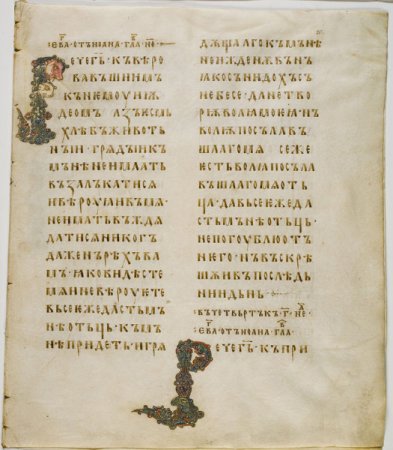 ѥва· отъ иоана· гла· не·
Рече гь· къ вѣро
вавъшиимъ
къ нѥмоу июд
деомъ· азъ ѥсмь
хлѣбъ животь
нꙑи· грядꙑи къ
мънѣ не имать
възалъкатися·
и вѣроуꙗи въ мя·
не имать въжда
датися никог
даже· нъ рѣхъ ва
мъ· ꙗко видѣсте
мя и не вѣроуѥте·
вьсе ѥже дастъ мъ
нѣ отьць· къ мъ
нѣ придеть· и гря
дѫщааго къ мънѣ
не ижденѫ вънъ·
ꙗко съnидохъ съ
небесе· да не тво
рѭ волѩ моѥѩ· нъ
волѭ посълавъ
шааго мя· се же ѥ
сть волꙗ посъла
въшааго мя отъ
ца· да вьсе ѥже да
стъ мънѣ отьць·
не погоублѭ отъ
него· нъ въскрѣ
шѫ и въ послѣдь
нии дьнь·
въ четвьртъкъ· г· не·
ѥва· отъ иоана· гла·
Рече гь· къ при